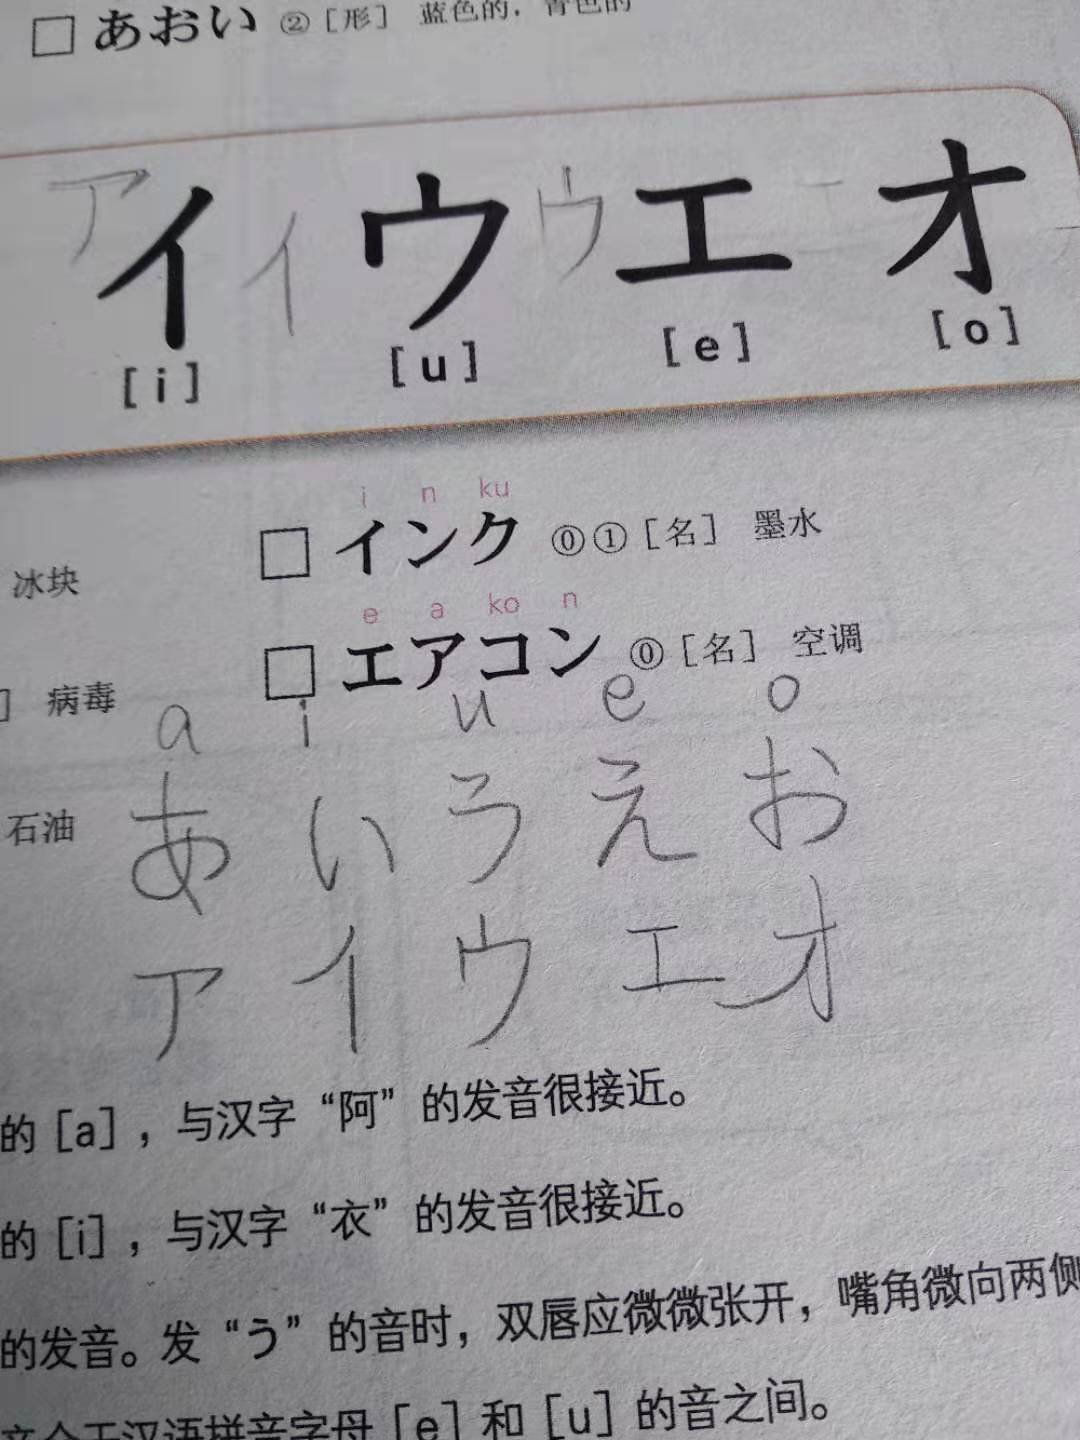 □ あおい ② [形] 蓝色的，青色的
ア イ イ ウ ウ エ エ オ
[i] [u] [e] [o]
i n ku
□ インク ⓪① [名] 墨水
冰块
e a ko n
□ エアコン ⓪ [名] 空调
] 病毒
a i u e o
石油
あ い う え お
ア イ ウ エ オ
的 [a]，与汉字“阿”的发音很接近。
的 [i]，与汉字“衣”的发音很接近。
的发音。发“う”的音时，双唇应微微张开，嘴角微向两侧
音介于汉语拼音字母 [e] 和 [u] 的音之间。